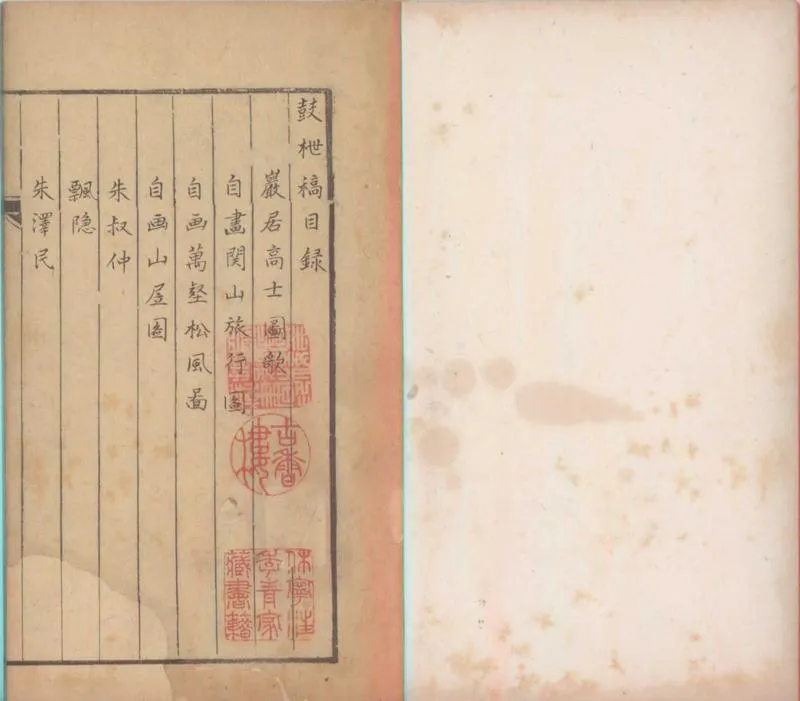 鼓枻稿目録
巖居高士圖歌
自畫関山旅行圖
自画萬壑松風啚
自画山屋圖
朱叔仲
飄隐
朱澤民
古香
樓
休寧汪
季青家
藏書籍